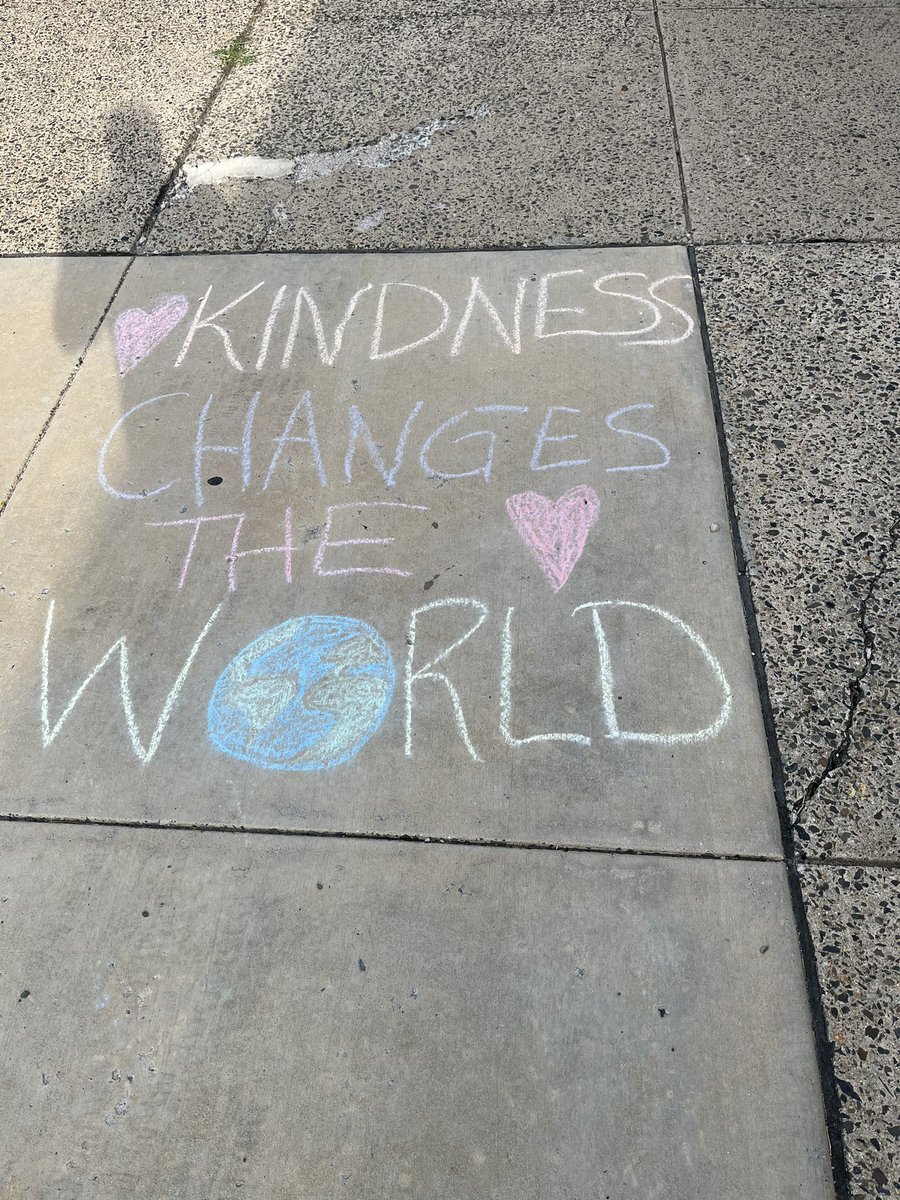 KINDNESS
CHANGES
THE
WORLD